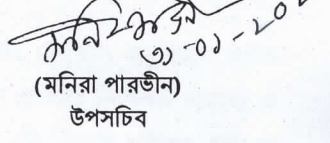 ৩১-০১-২০
(মনিরা পারভীন)
উপসচিব